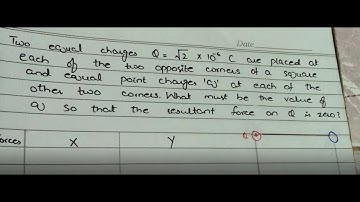 Date
Two equal charges Q = √2 × 10⁻⁶ C are placed at
each of the two opposite corners of a square
and equal point charges 'q' at each of the
other two corners. What must be the value of
q so that the resultant force on Q is zero?
orces X Y